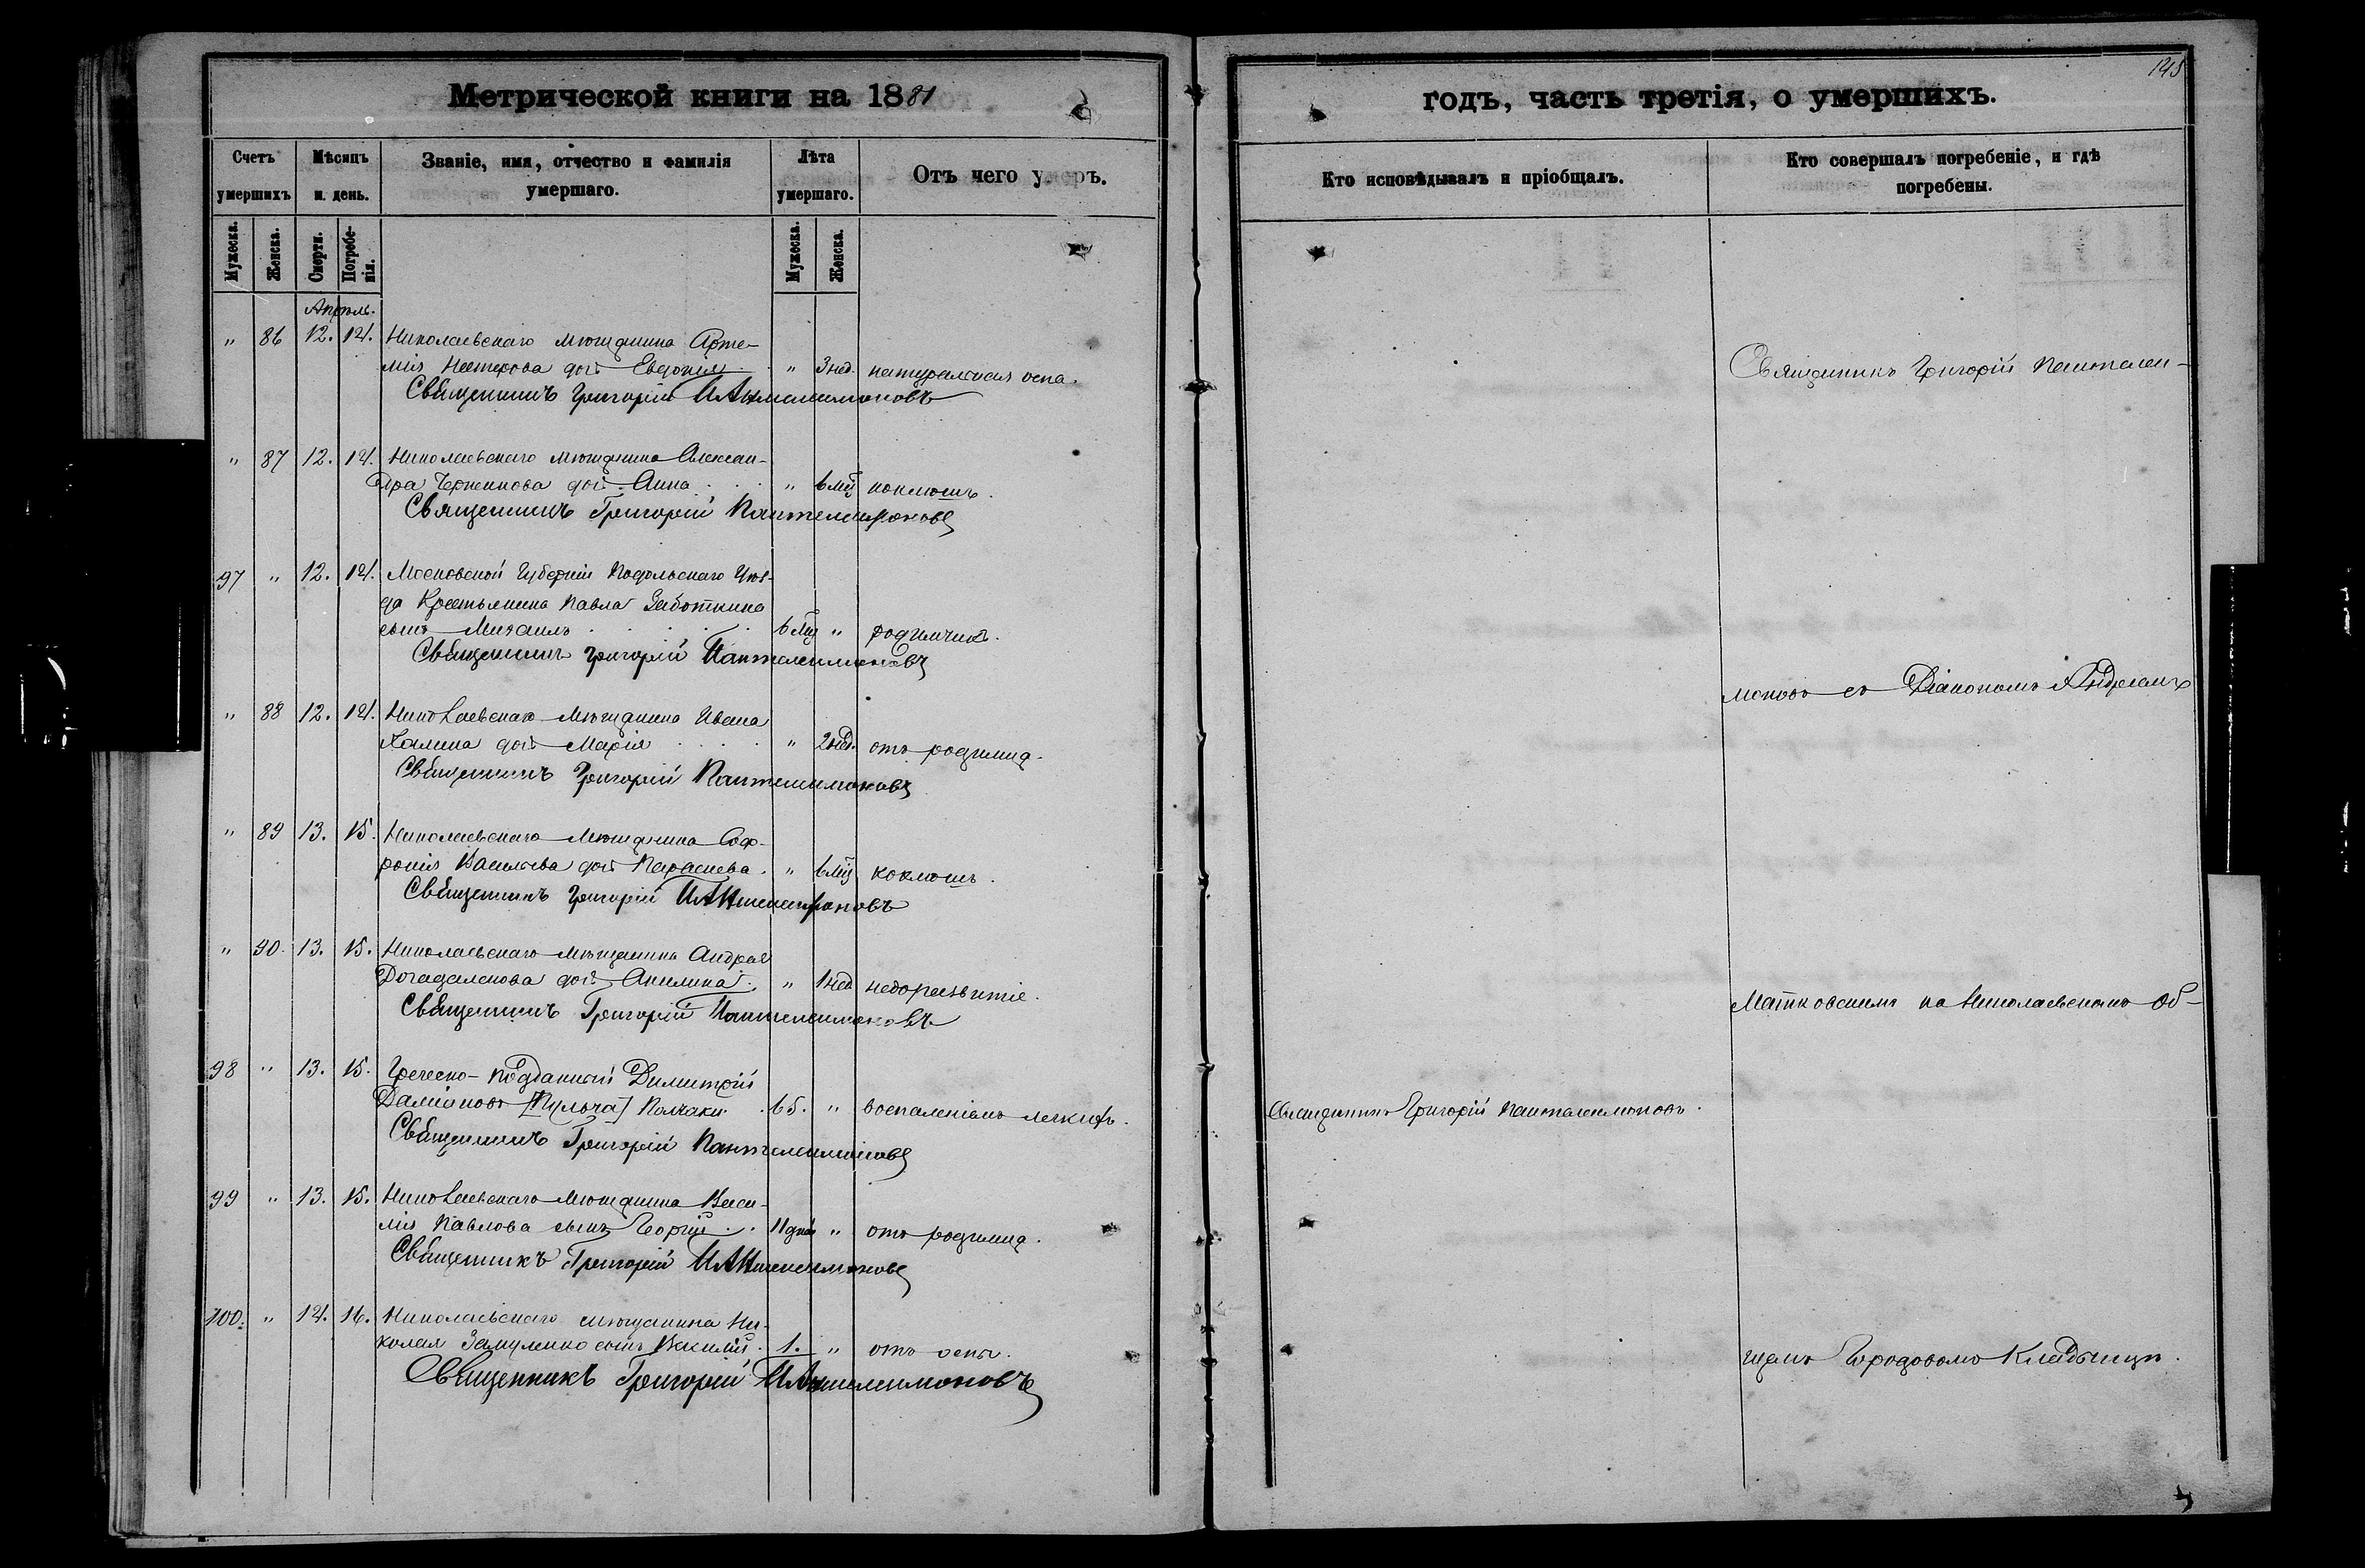 Метрической книги на 1881
Счетъ умершихъ
Мѣсяцъ и день.
Званіе, имя, отчество и фамилія умершаго.
Лѣта умершаго.
Отъ чего умеръ.
Мужеска. Женска. Смерти. Погребенія. Мужеска. Женска.
Апрѣль.
" 86 12. 14. Николаевскаго мѣщанина Арте-
мія Нестерова дочь Евдокія " 3 нед. натуральная оспа.
Священникъ Григорій Пантелеимоновъ
" 87 12. 14. Николаевскаго мѣщанина Алексан-
дра дочь Анна " 6 мц коклюшъ.
Священникъ Григорій Пантелеимоновъ
97 " 12. 14. Московской Губерніи Подольскаго Уѣз-
да Крестьянина Павла Заботкина
сынъ Михаилъ 6 мц " родимчикъ.
Священникъ Григорій Пантелеимоновъ
" 88 12. 14. Николаевскаго мѣщанина Ивана
дочь Марія " 2 нед. отъ родимца.
Священникъ Григорій Пантелеимоновъ
" 89 13. 15. Николаевскаго мѣщанина Соф-
ронія Васильева дочь Параскева " 6 мц коклюшъ.
Священникъ Григорій Пантелеимоновъ
" 90. 13. 15. Николаевскаго мѣщанина Андрея
дочь Акилина " 1 нед недоразвитіе.
Священникъ Григорій Пантелеимоновъ
98 " 13. 15. Греческо-подданный Димитрій
Даміановъ 65. " воспаленіемъ легкихъ.
Священникъ Григорій Пантелеимоновъ
99 " 13. 15. Николаевскаго мѣщанина Васи-
лія Павлова сынъ Георгій 11 дней " отъ родимца.
Священникъ Григорій Пантелеимоновъ
100. " 14. 16. Николаевскаго мѣщанина Ни-
колая сынъ Василій 1. " отъ оспы.
Священникъ Григорій Пантелеимоновъ
145
годъ, часть третія, о умершихъ.
Кто исповѣдывалъ и пріобщалъ.
Кто совершалъ погребеніе, и гдѣ
погребены.
Священникъ Григорій Пантелеи-
моновъ съ Діакономъ Андреемъ
Матковскимъ на Николаевскомъ об-
Священникъ Григорій Пантелеимоновъ.
щемъ Городовомъ Кладбищѣ.